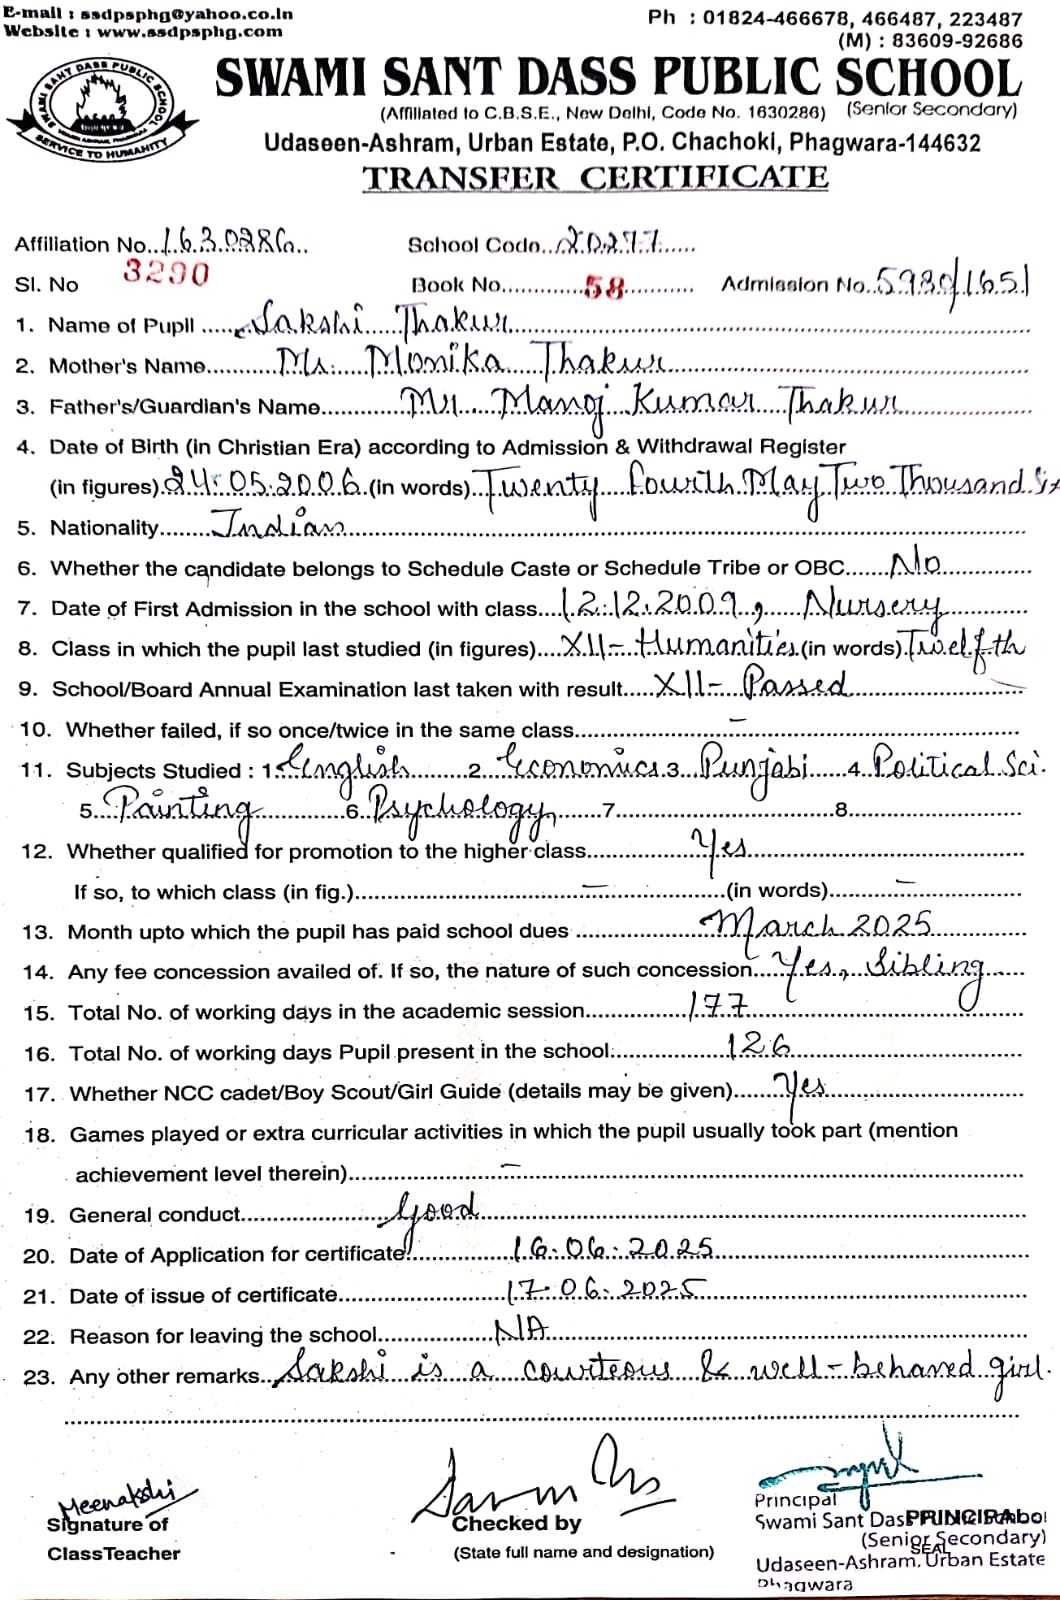 E-mail : ssdpsphg@yahoo.co.in
Website : www.ssdpsphg.com
Ph : 01824-466678, 466487, 223487
(M) : 83609-92686
SWAMI SANT DASS PUBLIC SCHOOL
SERVICE TO HUMANITY
SWAMI SANT DASS PUBLIC SCHOOL
(Affiliated to C.B.S.E., New Delhi, Code No. 1630286) (Senior Secondary)
Udaseen-Ashram, Urban Estate, P.O. Chachoki, Phagwara-144632
TRANSFER CERTIFICATE
Affiliation No...1630286.. School Code..20277......
Sl. No 3290 Book No............58........... Admission No..5980/1651
1. Name of Pupil ......Sakshi Thakur
2. Mother's Name...........Ms. Monika Thakur
3. Father's/Guardian's Name............Mr. Manoj Kumar Thakur
4. Date of Birth (in Christian Era) according to Admission & Withdrawal Register
(in figures).24.05.2006.(in words)..Twenty Fourth May Two Thousand Six
5. Nationality........Indian
6. Whether the candidate belongs to Schedule Caste or Schedule Tribe or OBC......No
7. Date of First Admission in the school with class....12.12.2009, Nursery
8. Class in which the pupil last studied (in figures)....XII - Humanities.(in words).Twelfth
9. School/Board Annual Examination last taken with result.....XII - Passed
10. Whether failed, if so once/twice in the same class........ -
11. Subjects Studied : 1. English 2. Economics 3. Punjabi 4. Political Sci.
5. Painting 6. Psychology, 7. 8.
12. Whether qualified for promotion to the higher class........Yes
If so, to which class (in fig.)........ - ........(in words)........ -
13. Month upto which the pupil has paid school dues ........March 2025
14. Any fee concession availed of. If so, the nature of such concession.....Yes, Sibling
15. Total No. of working days in the academic session........177
16. Total No. of working days Pupil present in the school........126
17. Whether NCC cadet/Boy Scout/Girl Guide (details may be given)........Yes
18. Games played or extra curricular activities in which the pupil usually took part (mention
achievement level therein)........ -
19. General conduct........Good
20. Date of Application for certificate........16.06.2025
21. Date of issue of certificate........17.06.2025
22. Reason for leaving the school........NA
23. Any other remarks..Sakshi is a courteous & well-behaved girl.
Meenakshi
Signature of
ClassTeacher
Checked by
(State full name and designation)
Principal
Swami Sant Dass PRINCIPAL
(Senior Secondary)
SEAL
Udaseen-Ashram, Urban Estate
Phagwara